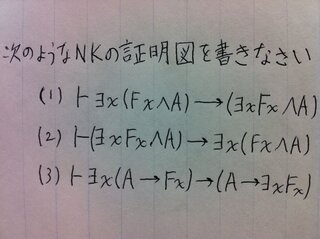 次のようなNKの証明図を書きなさい
(1) ⊢ ∃x(Fx∧A)→(∃xFx∧A)
(2) ⊢(∃xFx∧A)→∃x(Fx∧A)
(3) ⊢∃x(A→Fx)→(A→∃xFx)